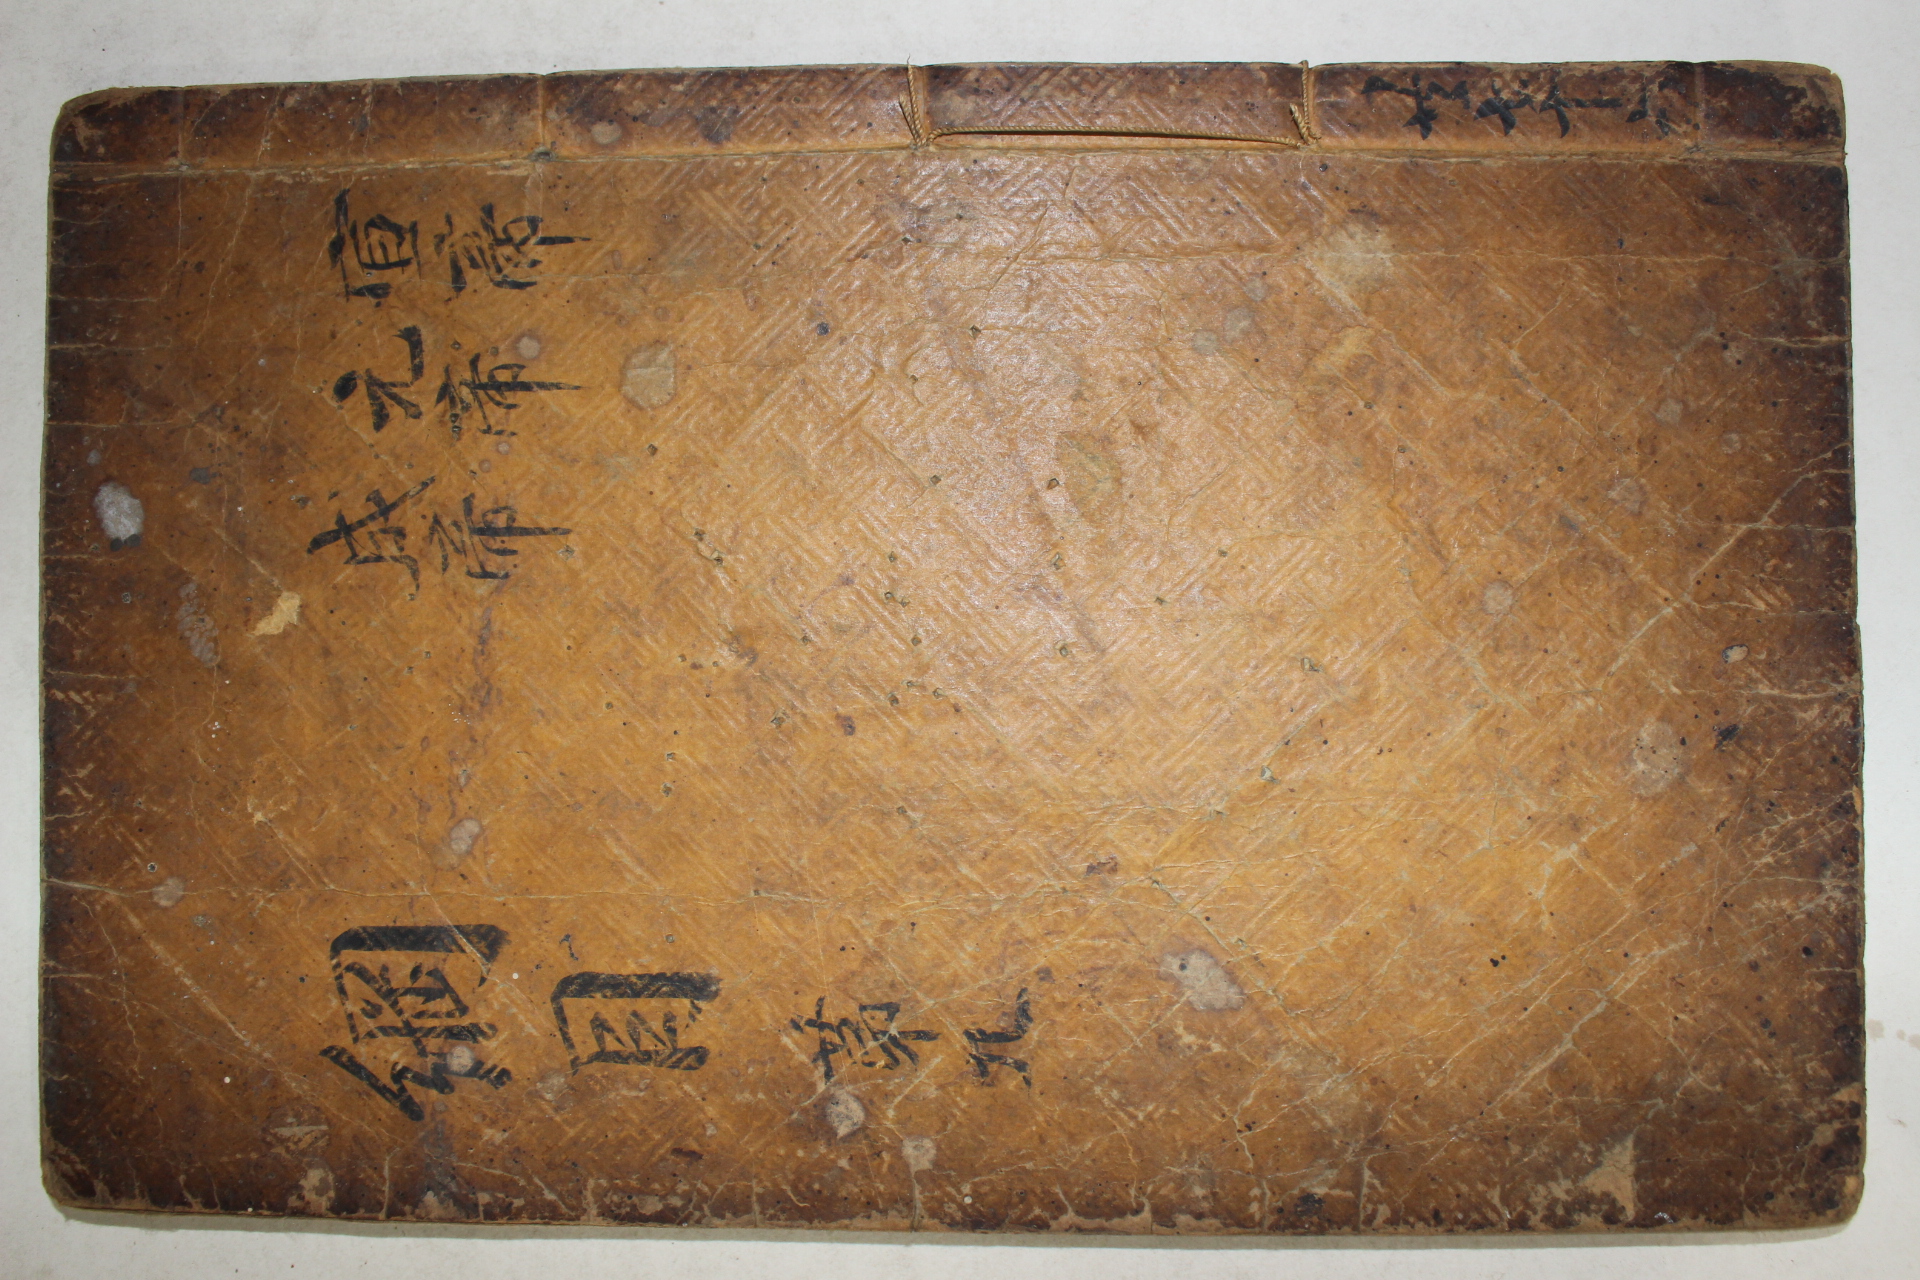 宣帝
元帝
成帝
綱目 第九